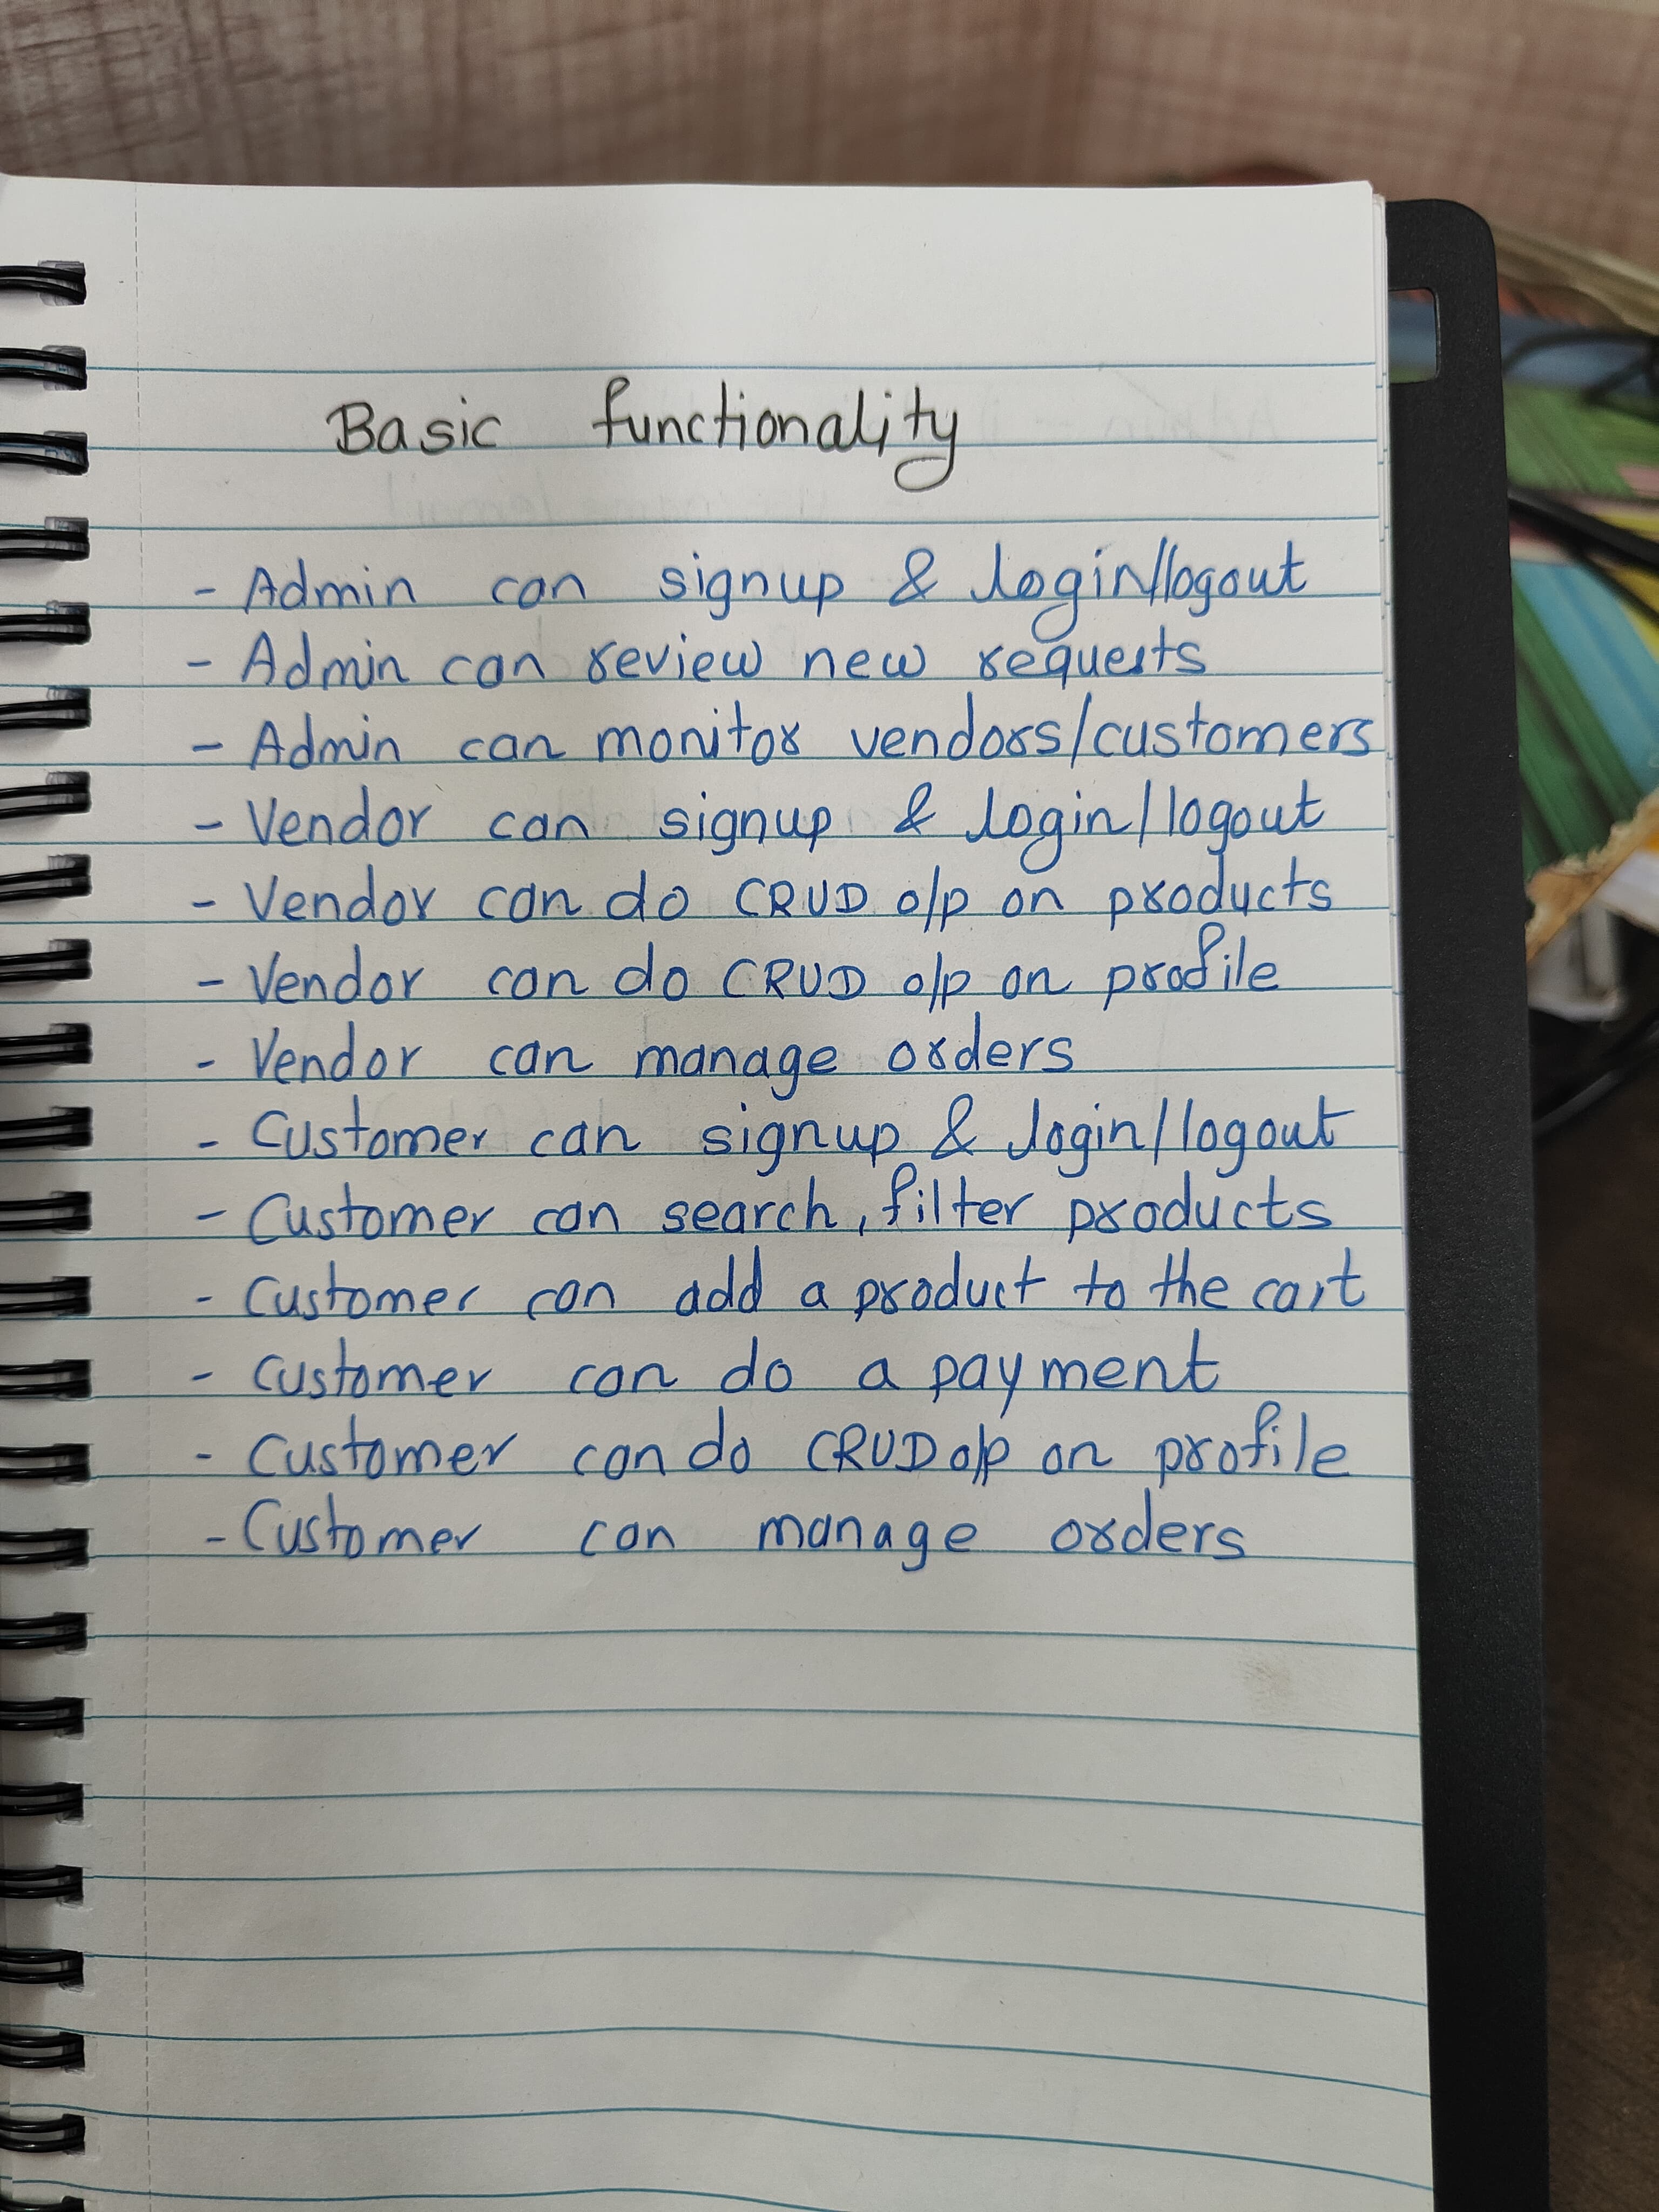 Basic functionality
- Admin can signup & login/logout
- Admin can review new requests
- Admin can monitor vendors/customers
- Vendor can signup & login/logout
- Vendor can do CRUD o/p on products
- Vendor can do CRUD o/p on profile
- Vendor can manage orders
- Customer can signup & login/logout
- Customer can search, filter products
- Customer can add a product to the cart
- Customer can do a payment
- Customer can do CRUD o/p on profile
- Customer can manage orders